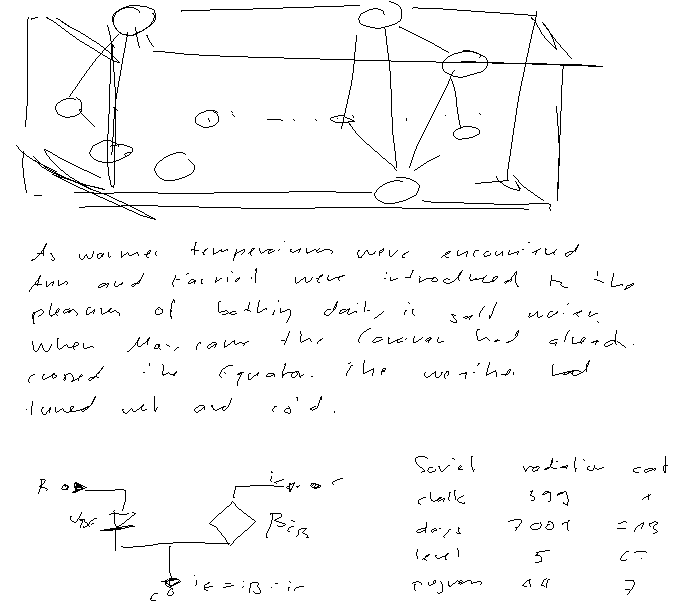 As warmer temperatures were encountered
Ann and Harriet were introduced to the
pleasures of bathing daily in salt water.
When May came the Caravan had already
crossed the Equator. The weather had
turned wet and cold.
B
ic
c
βiB
iE = iB - ic
Soviet radiation cost
chalk 399 1
days 7001 = 13
level 5
program 11 7